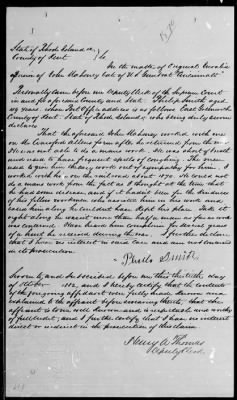 State of Rhode Island &c
County of Kent } ss.
In the matter of Original Invalid
of John Mahoney late of U.S. Gunboat Cincinnati
Personally came before me Deputy Clerk of the Supreme Court
in and for aforesaid County and State Philip Smith aged
years, whose Post Office address is as follows East Greenwich
County of Kent State of Rhode Island, who being duly sworn
declares
That the aforesaid John Mahoney worked with me
on the Crawford Allens farm after he returned from the
He was not able to do a mans work. He was short of breath
and used to have frequent spells of coughing. The men
used to give him the easy work out of sympathy for him. I
worked with him on the railroad about 1870. He could not
do a mans work from the fact as I thought at the time that
he had some disease, and if it hadnt been for the kindness
of his fellow workmen who assisted him in his work and
eased him along he couldnt have kept his place. Take it
right along he wasnt more than half a man as far as work
was concerned. I have heard him complain for several years
of a hurt he received during the war. I further declare
that I have no interest in said case and am not concerned
in its prosecution.
Philip Smith
Sworn to and subscribed before me this thirtieth day
of October 1882, and I hereby certify that the contents
of the foregoing affidavit were fully made known and
explained to the affiant before swearing thereto, that the
affiant is to me well known and is reputable and worthy
of full credit, and I further certify that I have no interest
direct or indirect in the prosecution of this claim.
Henry A. Thomas
Deputy Clerk.